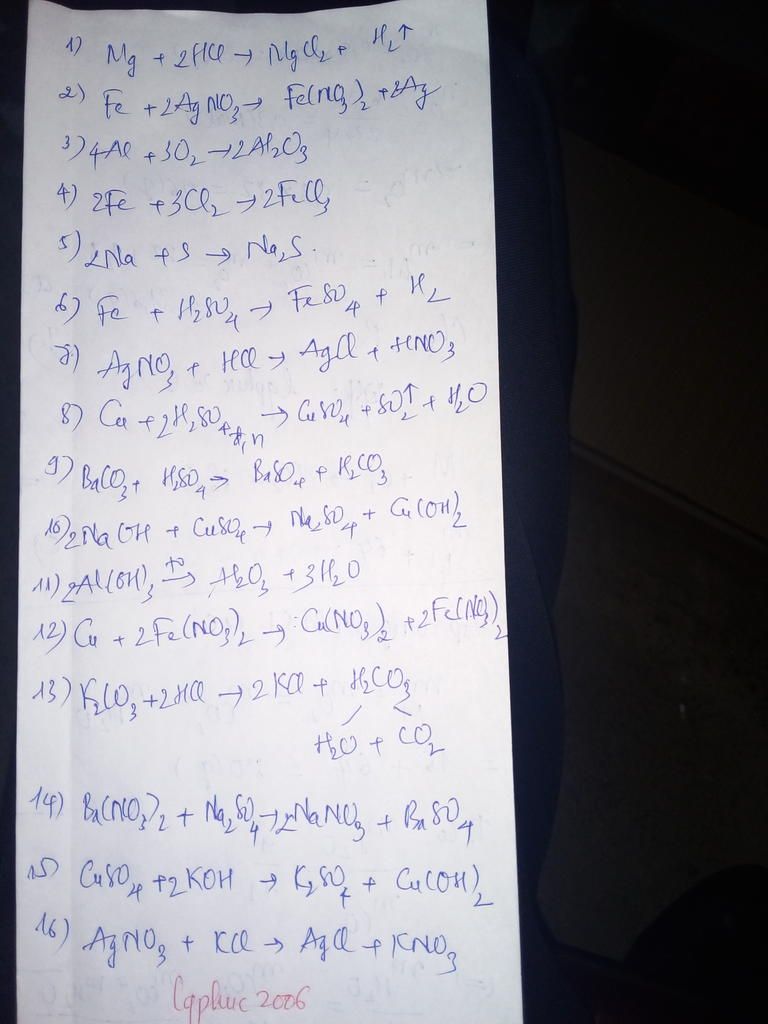 1) Mg + 2HCl → MgCl2 + H2↑
2) Fe + 2AgNO3 → Fe(NO3)2 + 2Ag
3) 4Al + 3O2 → 2Al2O3
4) 2Fe + 3Cl2 → 2FeCl3
5) 2Na + S → Na2S.
6) Fe + H2SO4 → FeSO4 + H2
7) AgNO3 + HCl → AgCl + HNO3
8) Cu + 2H2SO4 đ,n → CuSO4 + SO2↑ + H2O
9) BaCO3 + H2SO4 → BaSO4 + H2CO3
10) 2NaOH + CuSO4 → Na2SO4 + Cu(OH)2
11) 2Al(OH)3 to→ Al2O3 + 3H2O
12) Cu + 2Fe(NO3)2 → Cu(NO3)2 + 2Fe(NO3)2
13) K2CO3 + 2HCl → 2KCl + H2CO3
H2O + CO2
14) Ba(NO3)2 + Na2SO4 → 2NaNO3 + BaSO4
15) CuSO4 + 2KOH → K2SO4 + Cu(OH)2
16) AgNO3 + KCl → AgCl + KNO3
2006